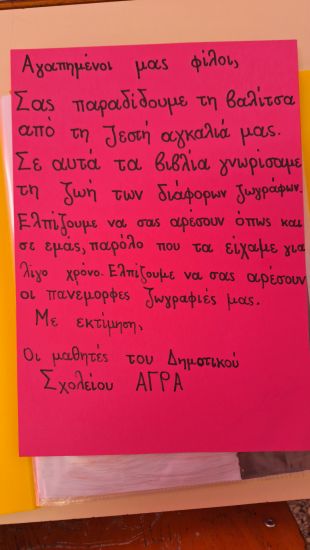 Αγαπημένοι μας φίλοι,
Σας παραδίδουμε τη βαλίτσα
από τη ζεστή αγκαλιά μας.
Σε αυτά τα βιβλία γνωρίσαμε
τη ζωή των διάφορων ζωγράφων.
Ελπίζουμε να σας αρέσουν όπως και
σε εμας, παρόλο που τα είχαμε για
λίγο χρόνο. Ελπίζουμε να σας αρέσουν
οι πανεμορφες ζωγραφιές μας.
Με εκτίμηση,
Οι μαθητές του Δημοτικού
Σχολείου ΑΓΡΑ